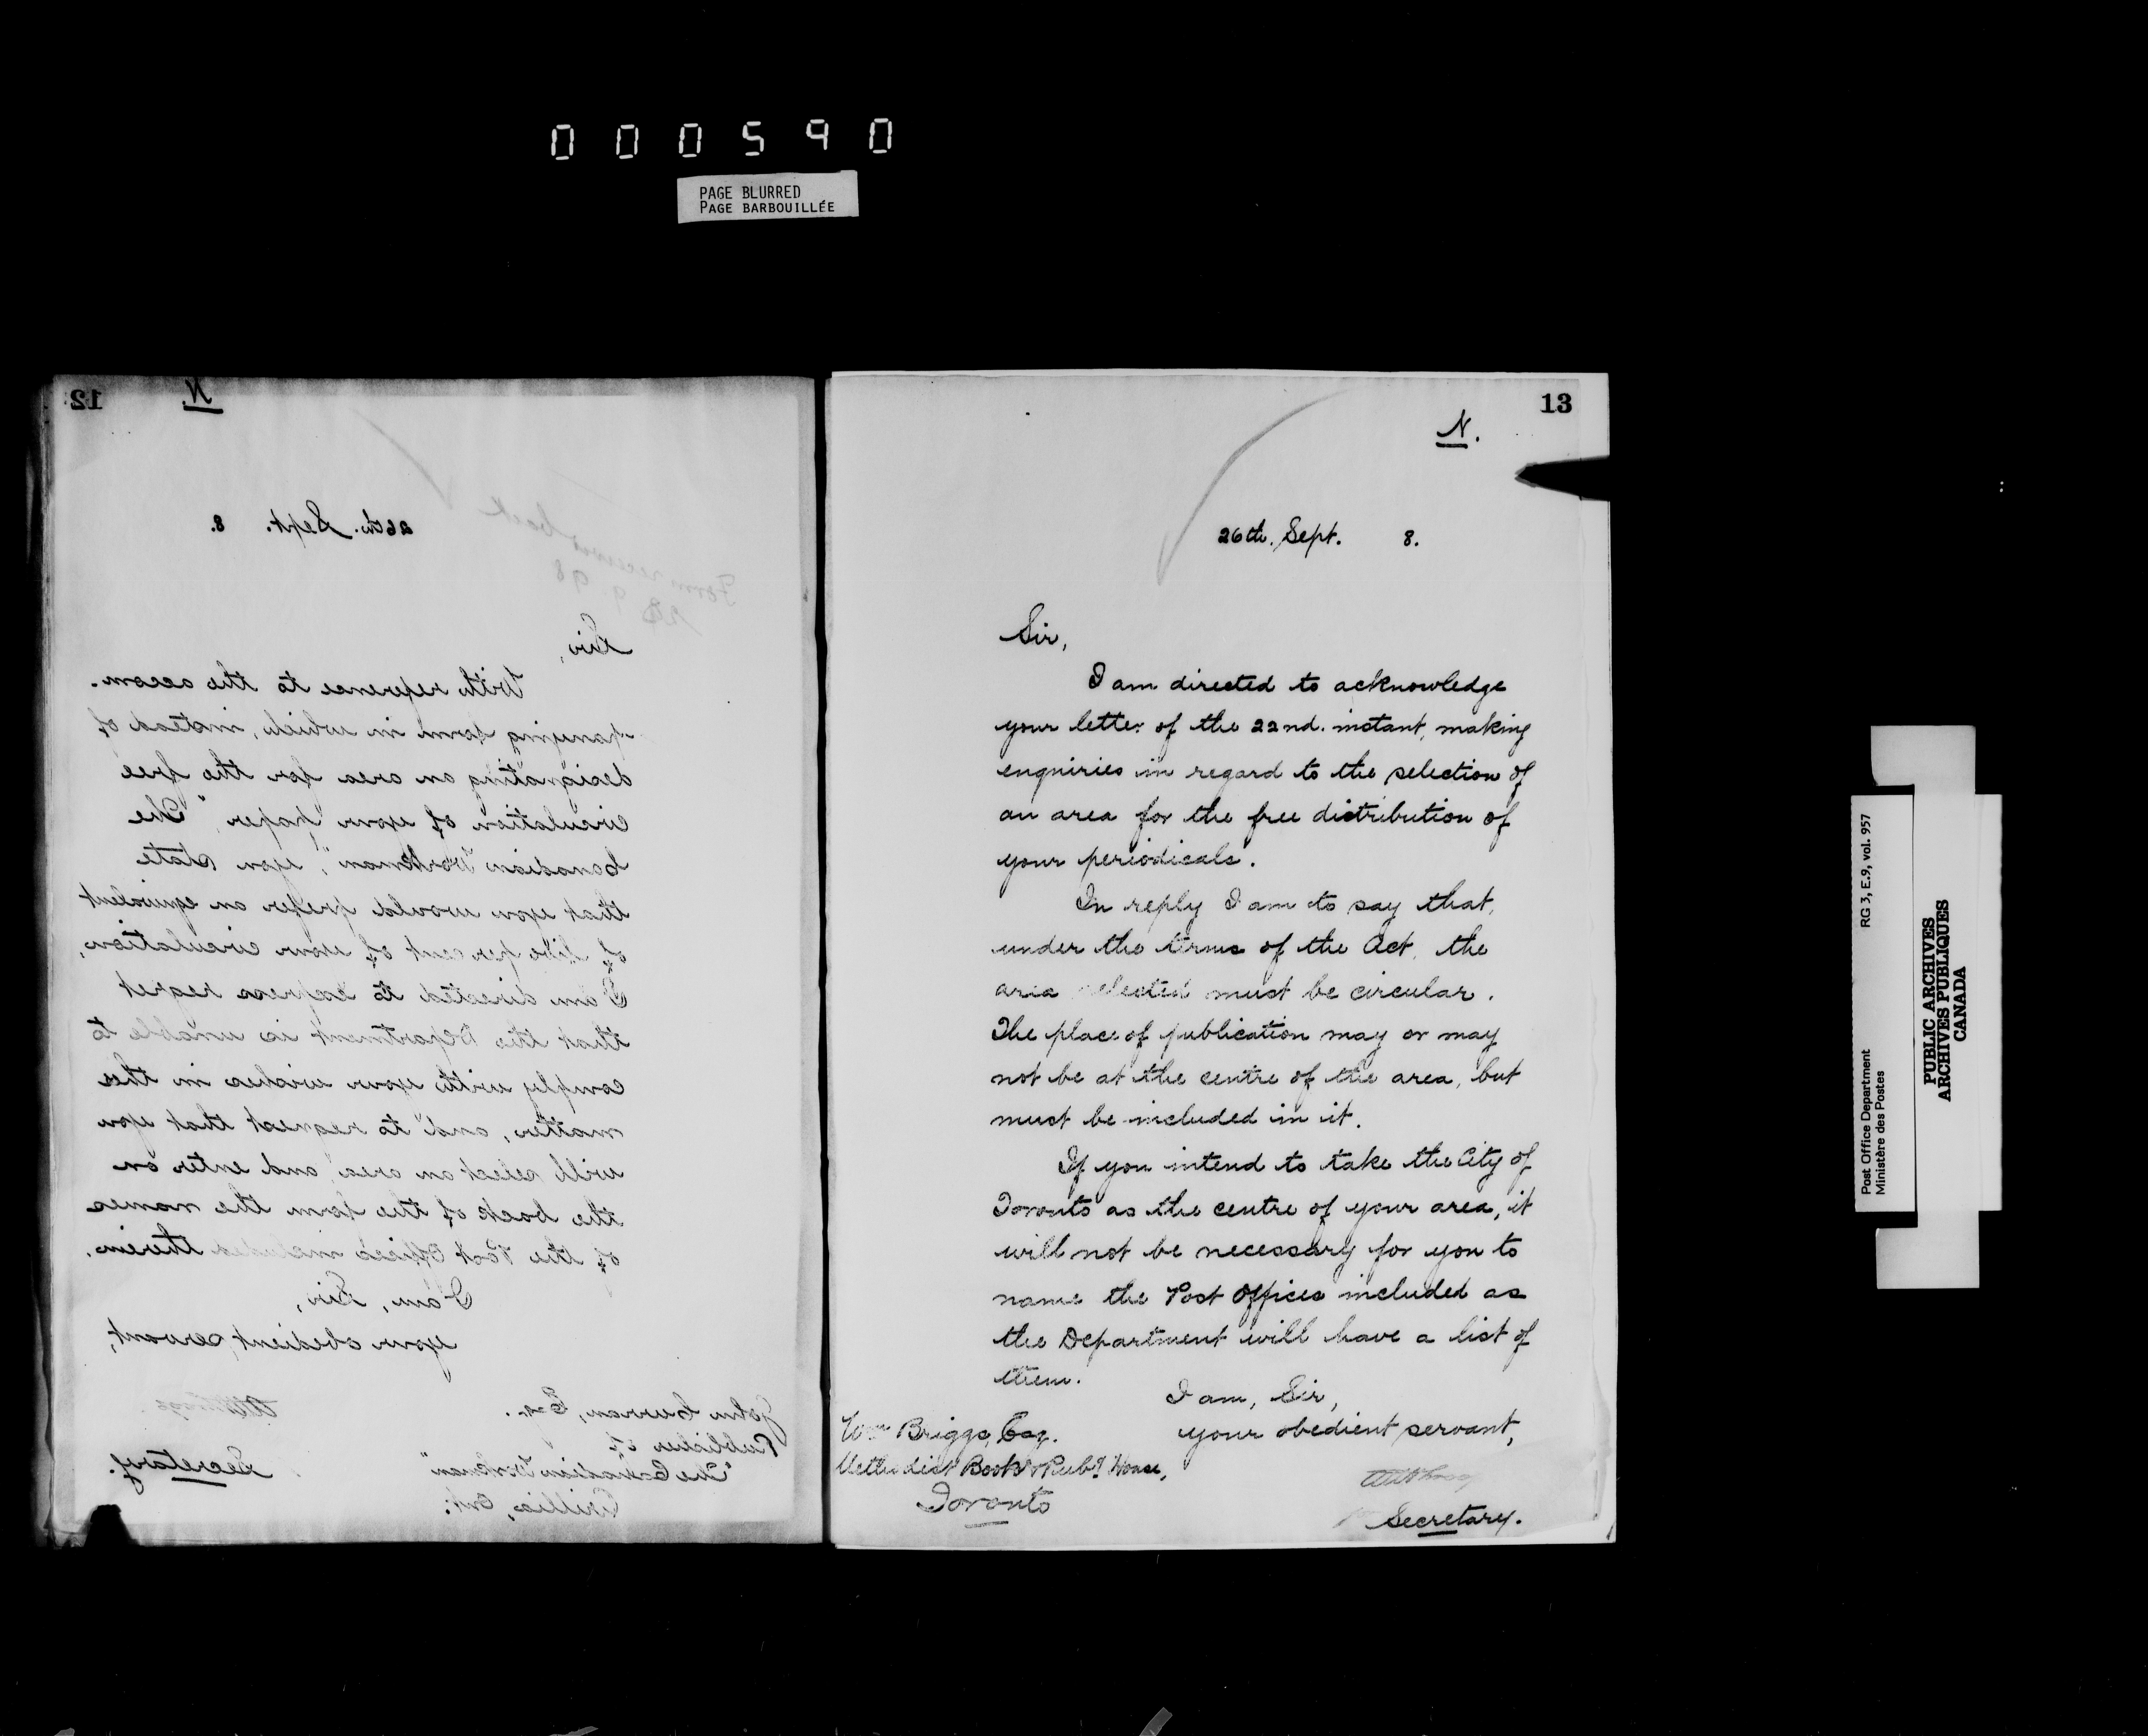 000590
PAGE BLURRED
PAGE BARBOUILLÉE
12
N.
26th. Sept. 8.
Form received back
9. 98
Sir,
With reference to the accom-
panying form in which, instead of
designating an area for the free
circulation of your paper "The
Canadian Workman", you state
that you would prefer an equivalent
of five per cent of your circulation,
I am directed to express regret
that the Department is unable to
comply with your wishes in this
matter, and to request that you
will select an area, and enter on
the back of the form the names
of the Post Offices included therein.
I am, Sir,
your obedient servant,
Secretary.
John Curran, Esq.
Publisher of
"The Canadian Workman"
Orillia, Ont.
13
N.
26th. Sept. 8.
Sir,
I am directed to acknowledge
your letter of the 22nd. instant, making
enquiries in regard to the selection of
an area for the free distribution of
your periodicals.
In reply I am to say that,
under the terms of the Act, the
area selected must be circular.
The place of publication may or may
not be at the centre of the area, but
must be included in it.
If you intend to take the City of
Toronto as the centre of your area, it
will not be necessary for you to
name the Post Offices included as
the Department will have a list of
them.
I am, Sir,
your obedient servant,
Secretary.
Wm Briggs, Esq.
Methodist Book & Pubg House,
Toronto
Post Office Department RG 3, E.9, vol. 957
Ministère des Postes
PUBLIC ARCHIVES
ARCHIVES PUBLIQUES
CANADA